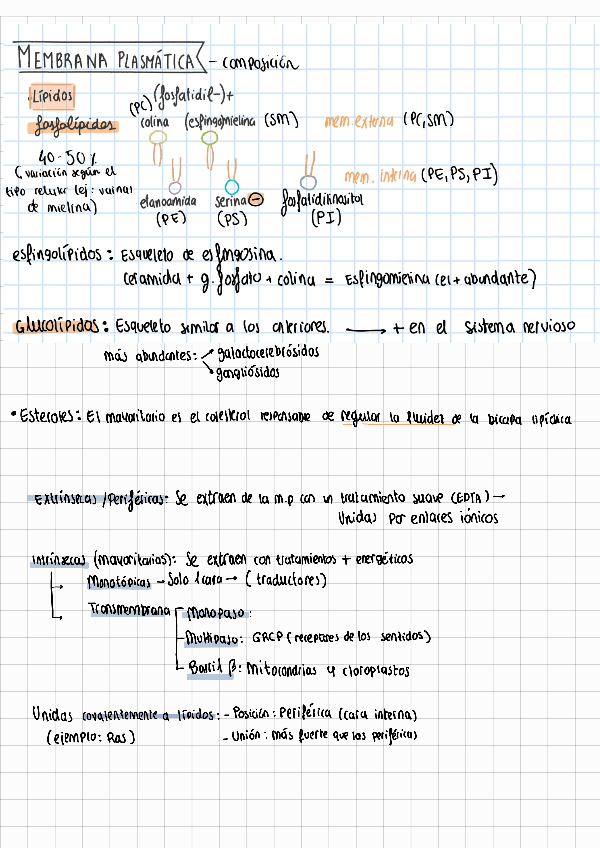 MEMBRANA PLASMÁTICA - composición
Lípidos
(PC) (fosfatidil-)+
fosfolípidos colina (espingo)mielina (SM) mem.externa (PC, SM)
40-50%
(variación según el
tipo celular (ej: vainas
de mielina)
mem. interna (PE, PS, PI)
etanoamida serina ⊖ fosfatidilinositol
(PE) (PS) (PI)
esfingolípidos: Esqueleto de esfingosina.
ceramida + g. fosfato + colina = Esfingomielina (el + abundante)
Glucolípidos: Esqueleto similar a los anteriores. → + en el sistema nervioso
más abundantes: galactocerebrósidos
gangliósidos
• Esteroles: El mayoritario es el colesterol responsable de regular la fluidez de la bicapa lipídica
Extrínsecas /Periféricas: Se extraen de la m.p con un tratamiento suave (EDTA) →
Unidas por enlaces iónicos
Intrínsecas (mayoritarias): Se extraen con tratamientos + energéticos
Monotópicas - Solo 1 cara → (traductores)
Transmembrana Monopaso:
Multipaso: GRCP (receptores de los sentidos)
Barril β: Mitocondrias y cloroplastos
Unidas covalentemente a lípidos: - Posición: Periférica (cara interna)
(ejemplo: Ras) - Unión: más fuerte que las periféricas